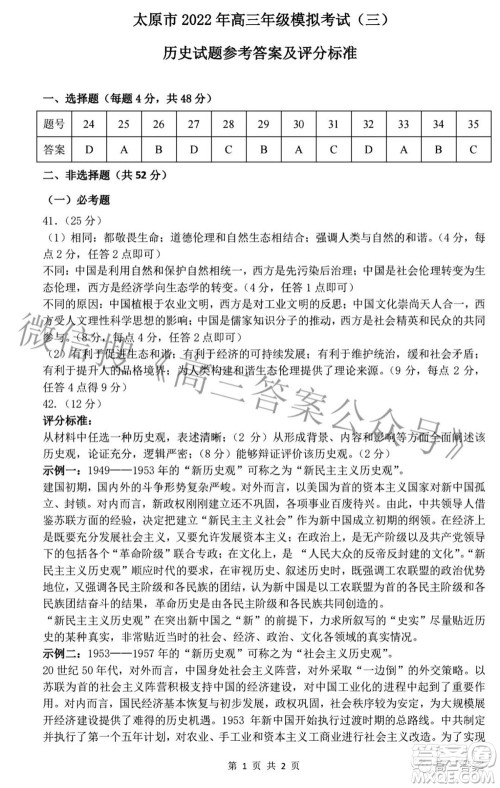 太原市 2022 年高三年级模拟考试（三）
历史试题参考答案及评分标准
一、选择题（每题 4 分，共 48 分）
题号 24 25 26 27 28 29 30 31 32 33 34 35
答案 D A B D C B A D A B C C
二、非选择题（共 52 分）
（一）必考题
41.（25 分）
（1）相同：都敬畏生命；道德伦理和自然生态相结合；强调人与自然的和谐。（4 分，每
点 2 分，任答 2 点即可）
不同：中国是利用自然和保护自然相统一，西方是先污染后治理；中国是社会伦理转变为生
态伦理，西方是经济伦理转变为生态伦理。（4 分，每点 2 分，任答 2 点即可）
不同的原因：中国植根于农业文明，西方植根于工业文明；中国文化崇尚天人合一，西
方受人文理性科学思想的影响；中国是儒家知识分子的推动，西方是社会精英和民众的共同
参与。（8 分，每点 4 分，任答 2 点即可）
（2）有利于促进生态和谐；有利于经济的可持续发展；有利于社会稳定，缓和社会矛盾；
有利于提升人类的品格境界；为人类构建和谐生态伦理提供了借鉴。（9 分，每点 2 分，
任答 4 点得 9 分）
42.（12 分）
评分标准：
从材料中任选一种历史观，表述清晰；（2 分）从历史背景、影响等方面全面阐述该
历史观，论证充分，逻辑严密；（8 分）能够辩证评价该历史观。（2 分）
示例一：1949——1953 年的“新历史观”可称之为“新民主主义历史观”。
建国初期，国内外的斗争形势严峻。对外而言，以美国为首的资本主义国家对中国孤
立、封锁。对内而言，新政权刚刚建立，各项事业百废待兴。由此，中共领导人
借鉴苏联方面的经验，在“新民主主义社会”的框架下，对外而言，中国既要允许
发展资本主义，又要允许发展其他类型的经济成分。对内而言，既强调以工农联盟为
首的各个“革命阶级”联合专政；在“人民大众的反帝反封建的文化”。“新
民主主义历史观”在这样的历史背景下应运而生，既强调工农联盟
为首的各民主阶级和各民族的团结，认为新中国是以工农联盟为首的各民主阶级和
各民族团结的结果，革命历史是由各阶级和各民族共同参与的。
“新民主主义历史观”在突出新中国成立初期时代特征，所书写的“史实”尽量突
出历史的某种真实，非常贴近当时的社会、经济、政治、文化各领域的状况。
示例二：1953——1957 年的“新历史观”可称之为“社会主义历史观”。
20 世纪 50 年代，对外而言，中国身处社会主义阵营，采取“一边倒”的外交战略，以
苏联为首的社会主义阵营积极支持中国的社会主义建设；对内而言，向社会主义过
渡是中国必须面临的历史机遇。1953 年中国开始推行过渡时期的总路线。中共制定并
执行了第一个五年计划，对农业、手工业和资本主义工商业进行社会主义改造。为实现
第 1 页 共 2 页
微信搜《高三答案公众号》
高三答案